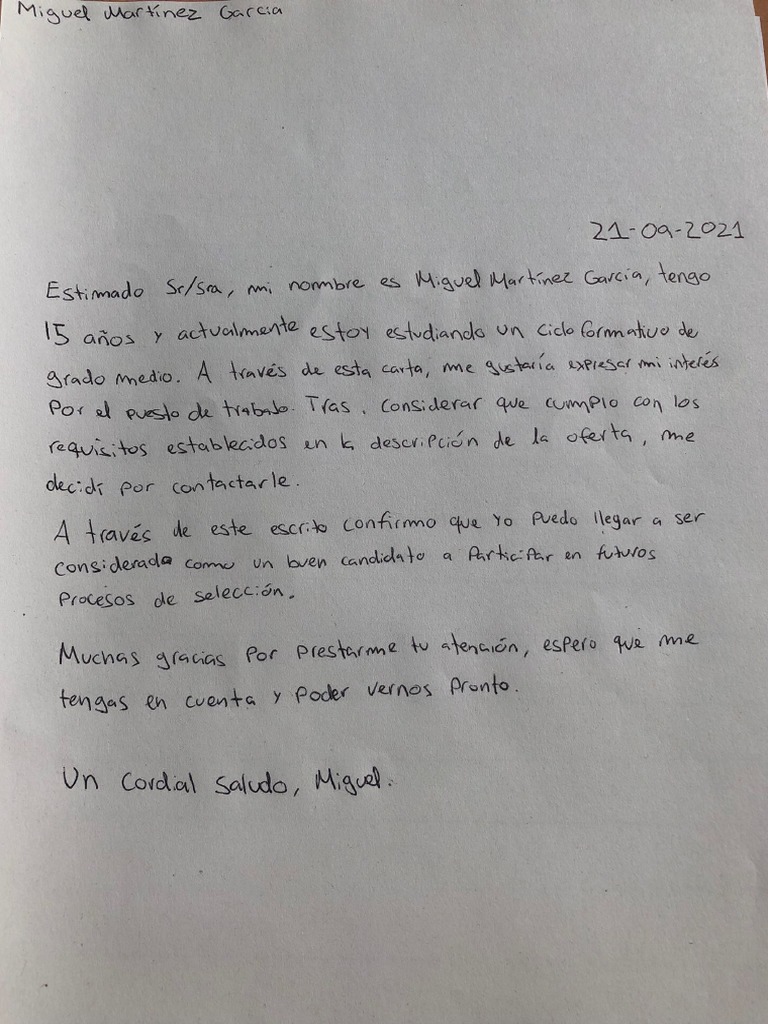 Miguel Martínez Garcia
21-09-2021
Estimado Sr/Sra, mi nombre es Miguel Martínez Garcia, tengo
15 años y actualmente estoy estudiando un ciclo formativo de
grado medio. A través de esta carta, me gustaría expresar mi interés
Por el puesto de trabajo. Tras, considerar que cumplo con los
requisitos establecidos en la descripción de la oferta, me
decidí por contactarle.
A través de este escrito confirmo que yo puedo llegar a ser
considerado como un buen candidato a Participar en futuros
Procesos de selección.
Muchas gracias por prestarme tu atención, espero que me
tengas en cuenta y poder vernos Pronto.
Un Cordial saludo, Miguel.